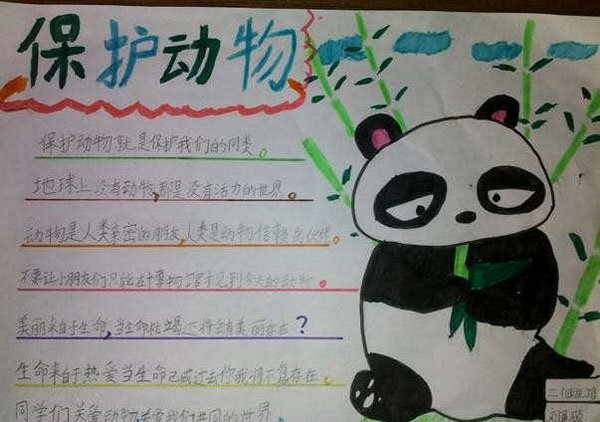 保护动物
保护动物就是保护我们的同类。
地球上没有动物,那是没有活力的世界。
动物是人类亲密的朋友,人类是动物信赖的伙伴。
不要让小朋友们只能在博物馆才见到今天的动物。
美丽来自于生命,当生命枯竭还将会有美丽存在?
生命来于热爱当生命已成过去你我将不复存在。
同学们关爱动物关爱我们共同的世界
二
刘